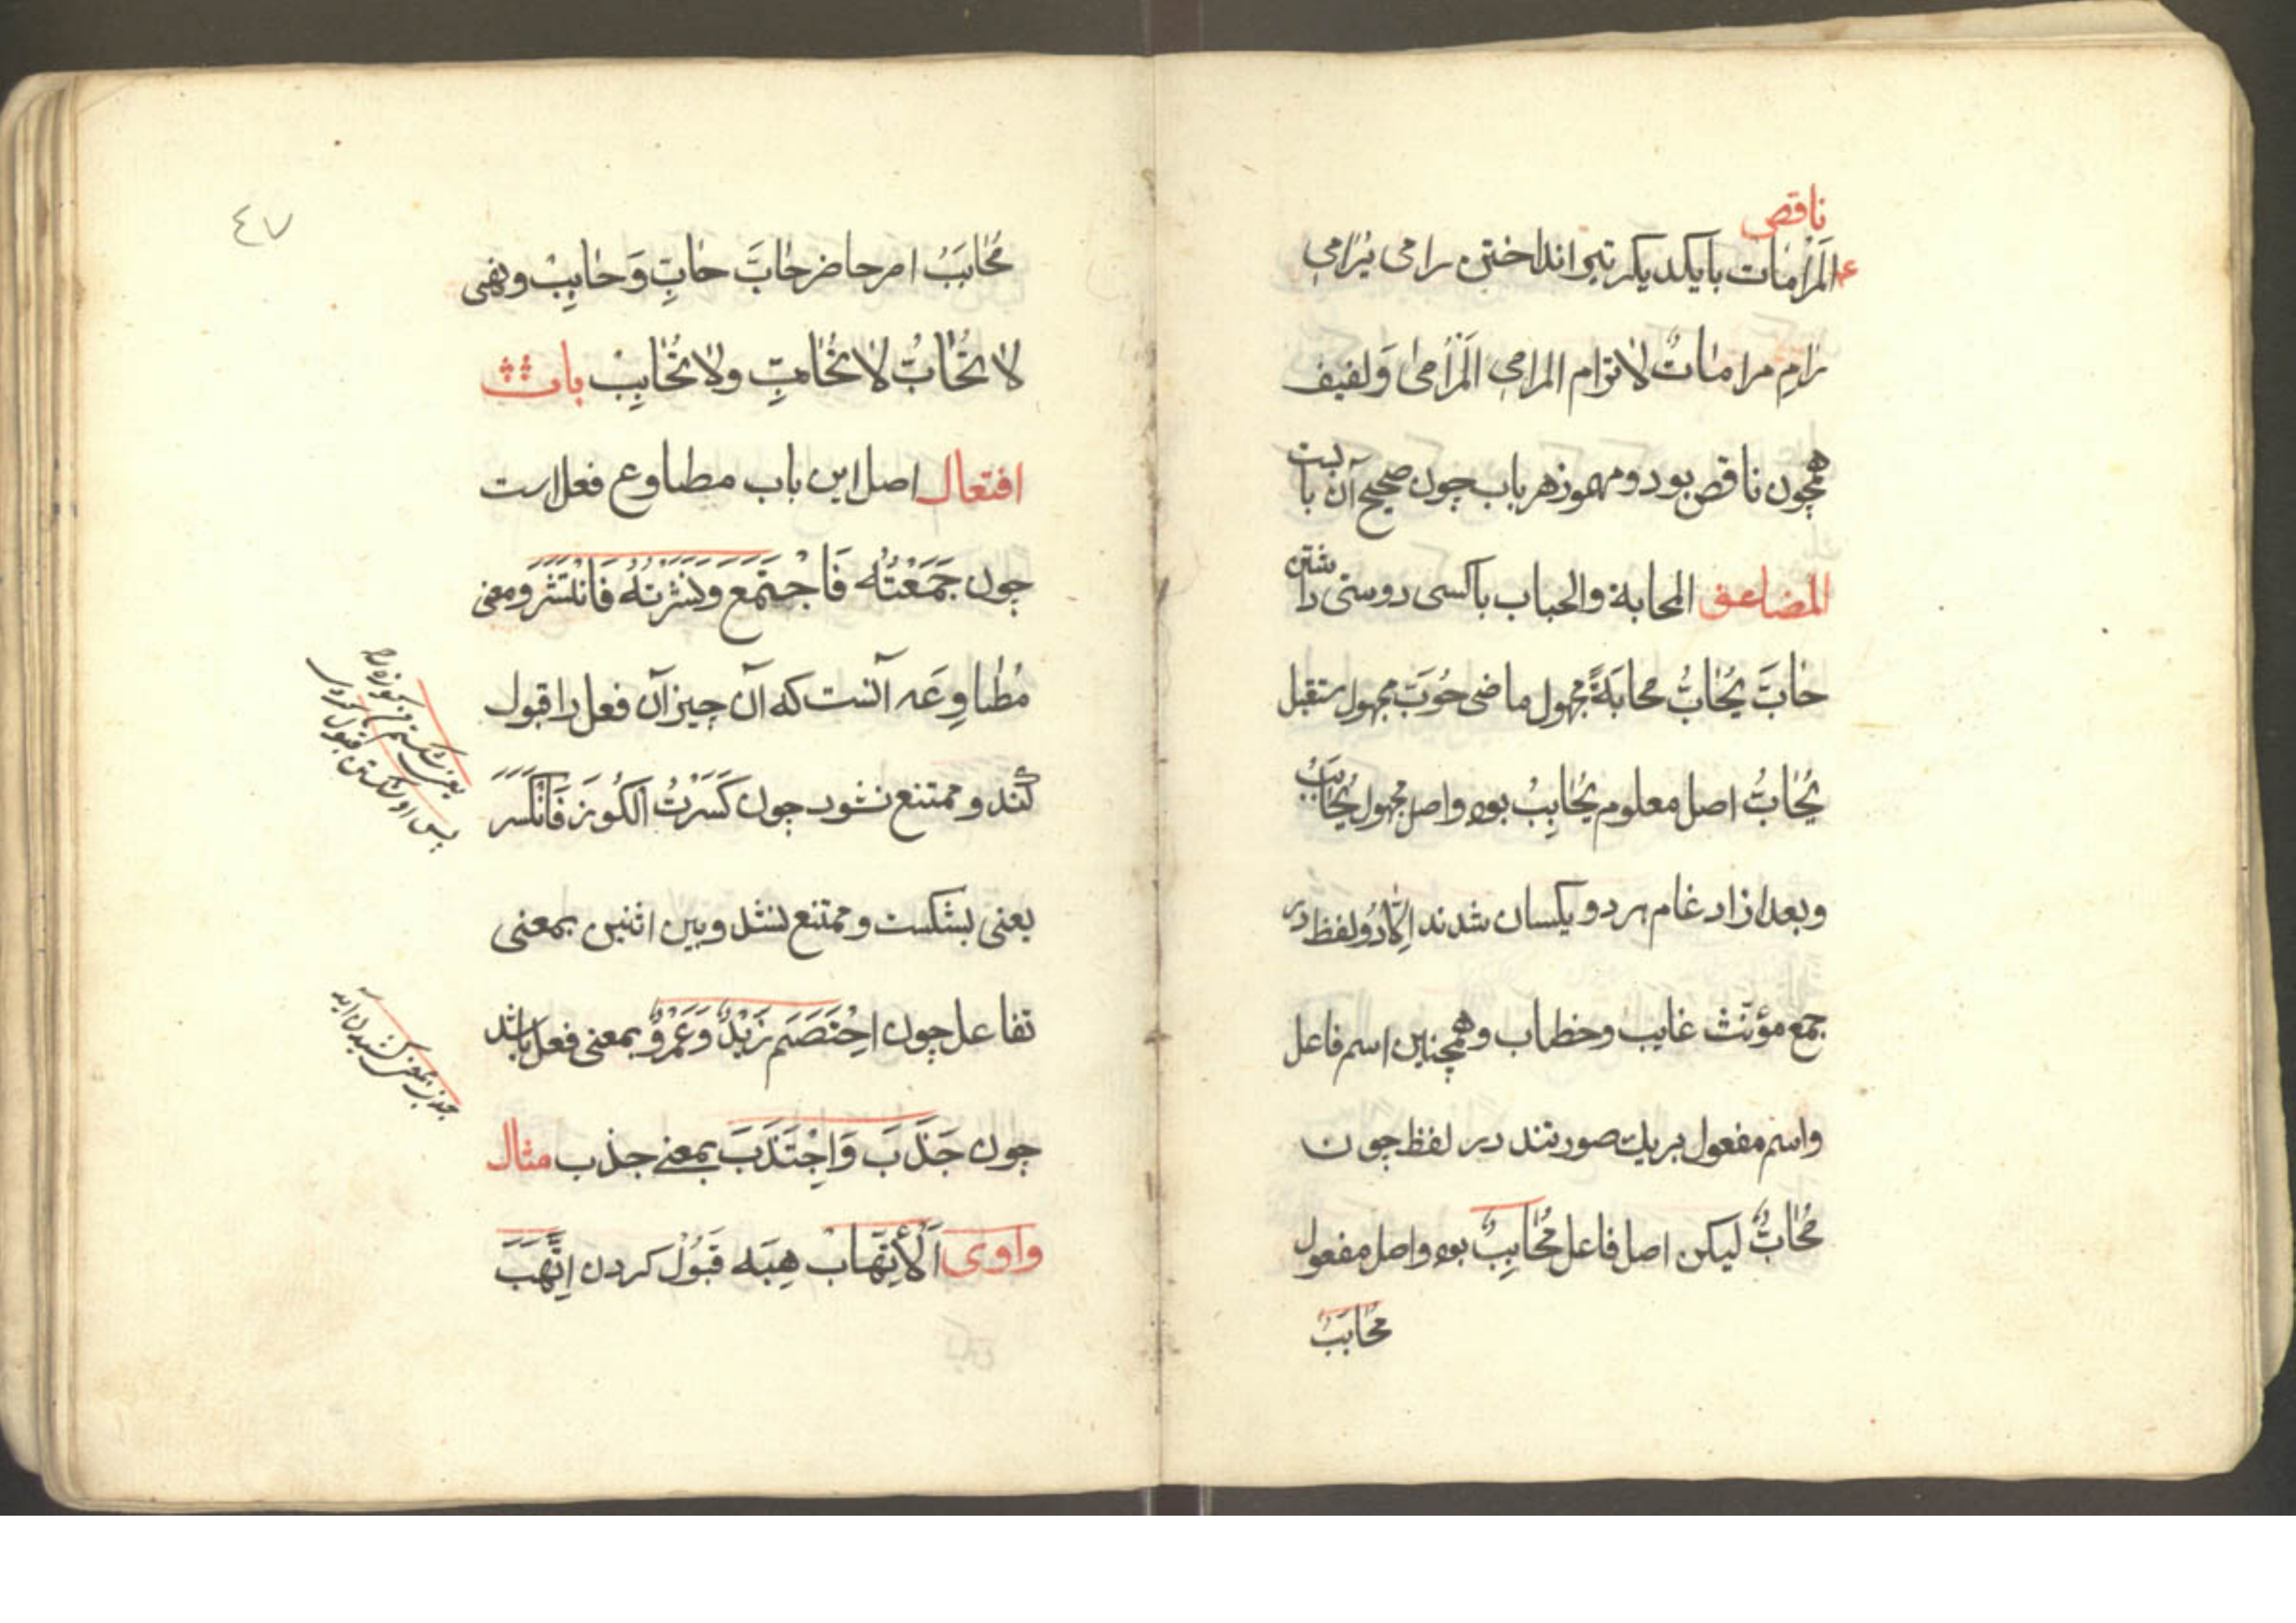 ناقص
المرامات بایکدیکر تیر انداختن رامی یُرامی
رامِ مرامات لا ترام المرامی المرامی وَلفیف
همچون ناقص بود و مهموز هر باب چون صحیح آن باب
المضاعف المحابة والحباب باکسی دوستی داشتن
حَابَّ یُحَابُّ محابَةً مجهول ماضی حُوبَّ مجهول مستقبل
یُحَابُّ اصل معلوم یُحَابِبُ بوده واصل مجهول یُحَابَبُ
وبعد از ادغام هر دو یکسان شدند اِلّا دَر دُو لفظ
جمع مؤنث غایب وخطاب وهمچنین اسم فاعل
واسم مفعول بریك صورتند در لفظ چون
مُحَابٌّ لیکن اصل فاعل مُحَابِبٌ بوده واصل مفعول
محابَبٌ
٤٧
مُحَابَبٌ امر حاضر حَابَّ حابِّ وَحابِبْ ونهی
لا تُحَابَّ لا تُحَابِّ ولا تُحَابِبْ باب
افتعال اصل این باب مطاوع فعل است
چون جَمَعْتُه فَاجْتَمَعَ وَنَشَرْتُهُ فَانْتَشَرَ ومعنی
مُطاوِعَه آنست که آن چیز آن فعل را قبول
کُنَد و ممتنع نشود چون کَسَرْتُ الکُوزَ فَانْکَسَرَ
یعنی بشکست و ممتنع نشد وبین اثنین بمعنی
تفاعل چون اخْتَصَمَ زَیْدٌ وَعَمْرٌو بمعنی فعل باشد
چون جَذَبَ وَاجْتَذَبَ بمعنی جذب مثال
واوی اَلْاِتِّهَابْ هِبَه قَبُولْ کردن اتَّهَبَ